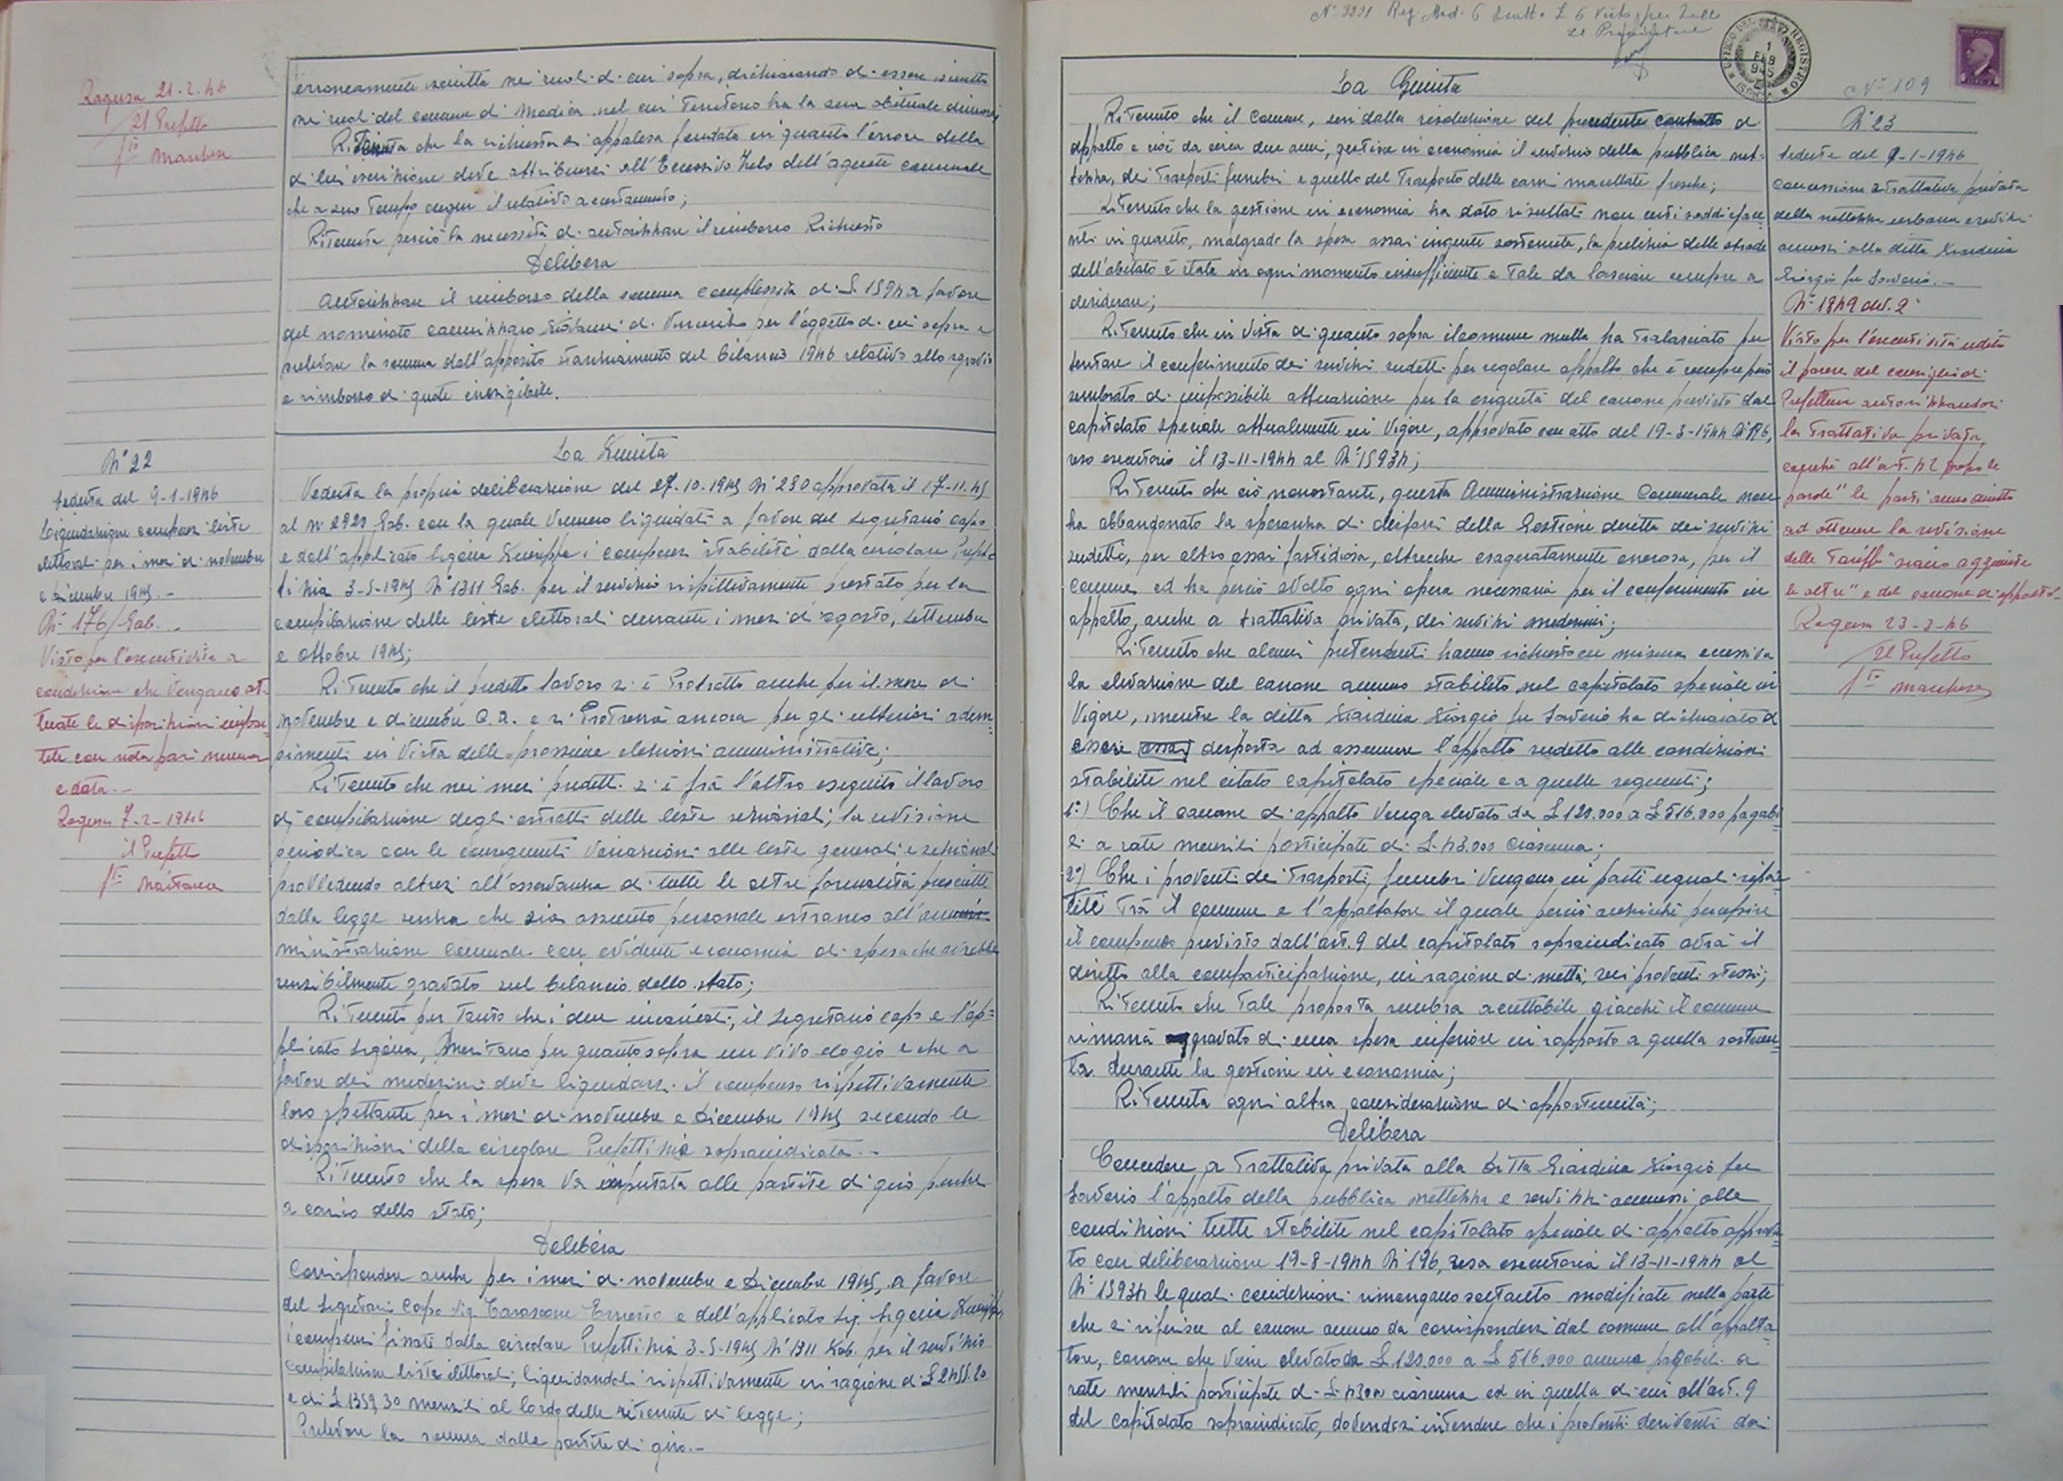 Ragusa 21-2-46
Il Prefetto
fto
erroneamente iscritta nei ruoli di cui sopra, dichiarando di essere iscritto
nei ruoli del comune di Modica nel cui Territorio ha la sua abituale dimora
Ritenuta che la richiesta si appalesa fondata in quanto l'errore della
di lui iscrizione deve attribuirsi all'Eccessivo Zelo dell'agente comunale
che a suo tempo eseguì il relativo accertamento;
Ritenuta perciò la necessità di autorizzare il rimborso Richiesto
Delibera
autorizzare il rimborso della somma complessiva di £ 1594 a favore
del nominato Giovanni di Vincenzo per l'oggetto di cui sopra e
prelevare la somma dall'apposito stanziamento del bilancio 1946 relativo allo sgravio
e rimborso di quote inesigibili.
N° 22
seduta del 9-1-1946
Liquidazione compensi liste
elettorali per i mesi di novembre
e dicembre 1945.-
N° 176/Gab.
Visto per l'esecutività a
condizione che vengano at-
tuate le disposizioni impar-
tite con nota pari numero
e data.-
Ragusa 7-2-1946
il Prefetto
fto
La Giunta
Veduta la propria deliberazione del 27-10-1945 N° 230 approvata il 17-11-45
al n° 2929 Gab. con la quale vennero liquidati a favore del segretario capo
e dell'applicato Sigona Giuseppe i compensi stabiliti dalla circolare Prefet-
tizia 3-5-1945 N° 1311 Gab. per il servizio rispettivamente prestato per la
compilazione delle liste elettorali durante i mesi di agosto, settembre
e ottobre 1945;
Ritenuto che il predetto lavoro si è Protratto anche per il mese di
novembre e dicembre c.a. e si Protrarrà ancora per gli ulteriori adem-
pimenti in vista delle prossime elezioni amministrative;
Ritenuto che nei mesi predetti si è fra l'altro eseguito il lavoro
di compilazione degli estratti delle liste sezionali, la revisione
periodica con le conseguenti variazioni alle liste generali e sezionali
provvedendo altresì all'osservanza di tutte le altre formalità prescritte
dalla legge senza che sia assunto personale estraneo all'ammi-
ministrazione comunale con evidente economia di spesa che sarebbe
sensibilmente gravato sul bilancio dello stato;
Ritenuto per Tanto che i due incaricati, il segretario capo e l'ap-
plicato Sigona, Meritano per quanto sopra un vivo elogio e che a
favore dei medesimi deve liquidarsi il compenso rispettivamente
loro spettante per i mesi di novembre e Dicembre 1945 secondo le
disposizioni della circolare Prefettizia sopraindicata.-
Ritenuto che la spesa va imputata alle partite di giro perchè
a carico dello stato;
Delibera
Corrispondere anche per i mesi di novembre e Dicembre 1945, a favore
del Segretario Capo Sig. Ernesto e dell'applicato Sig. Sigona Giuseppe
i compensi fissati dalla circolare Prefettizia 3-5-1945 N° 1311 Gab. per il servizio
compilazione liste elettorali, liquidandoli rispettivamente in ragione di £ 2455.20
e di £ 1359,30 mensili al lordo delle ritenute di legge;
Prelevare la somma dalle partite di giro.-
N° 3231 Reg. Mod. 6 £ 6 Visto per bollo
Il Procuratore
UFFICIO DEL REGISTRO
N° 109
La Giunta
Ritenuto che il Comune, sin dalla risoluzione del precedente contratto di
appalto e cioè da circa due anni, gestisce in economia il servizio della pubblica net-
tezza, dei Trasporti funebri e quello del Trasporto delle carni macellate fresche;
Ritenuto che la gestione in economia ha dato risultati non certi soddisfacen-
ti in quanto, malgrado la spesa assai ingente sostenuta, la pulizia delle strade
dell'abitato è stata in ogni momento insufficiente e Tale da lasciare sempre a
desiderare;
Ritenuto che in vista di quanto sopra il comune nulla ha Tralasciato per
tentare il conferimento dei servizi sudetti per regolare appalto che è sempre però
sembrato di impossibile attuazione per la esiguità del canone previsto dal
capitolato speciale attualmente in Vigore, approvato con atto del 19-3-1944 N° 196,
reso esecutorio il 13-11-1944 al N° 15934;
Ritenuto che ciò nonostante, questa Amministrazione Comunale non
ha abbandonato la speranza di disfarsi della Gestione diretta dei servizi
sudetti, per altro assai fastidiosa, oltrechè esageratamente onerosa, per il
comune, ed ha perciò svolto ogni opera necessaria per il conferimento in
appalto, anche a trattativa privata, dei servizi medesimi;
Ritenuto che alcuni pretendenti hanno richiesto in misura eccessiva
la elevazione del canone annuo stabilito nel capitolato speciale in
Vigore, mentre la ditta Giardina Giorgio fu Saverio ha dichiarato di
essere disposta ad assumere l'appalto sudetto alle condizioni
stabilite nel citato capitolato speciale e a quelle seguenti;
1°) Che il canone di appalto Venga elevato da £ 120.000 a £ 516.000 pagabi-
li a rate mensili posticipate di £. 43.000 ciascuna;
2°) Che i proventi dei Trasporti funebri Vengano in parti uguali ripar-
titi Tra il comune e l'appaltatore il quale perciò anzichè percepire
il compenso previsto dall'art. 9 del capitolato sopraindicato avrà il
diritto alla compartecipazione, in ragione di metà, sui proventi stessi;
Ritenuto che Tale proposta sembra accettabile giacchè il comune
rimarrà gravato di una spesa inferiore in rapporto a quella sostenu-
ta durante la gestione in economia;
Ritenuta ogni altra considerazione di opportunità;
Delibera
Concedere a Trattativa privata alla Ditta Giardina Giorgio fu
Saverio l'appalto della pubblica nettezza e servizi annessi alle
condizioni tutte stabilite nel capitolato speciale di appalto approva-
to con deliberazione 19-8-1944 N° 196, resa esecutoria il 13-11-1944 al
N° 15934 le quali condizioni rimangano soltanto modificate nella parte
che si riferisce al canone annuo da corrispondersi dal comune all'appalta-
tore, canone che viene elevato da £ 120.000 a £ 516.000 annue pagabili a
rate mensili posticipate di £. 43000 ciascuna ed in quella di cui all'art. 9
del capitolato sopraindicato, dovendosi intendere che i proventi derivanti dai
N° 23
seduta del 9-1-1946
concessione a Trattativa privata
della nettezza urbana e servizi
annessi alla ditta Giardina
Giorgio fu Saverio.-
N° 1849 div. 2°
Visto per l'esecutività udito
il parere del consiglio di
Prefettura autorizzandosi
la Trattativa privata,
purchè all'art. 42 dopo le
parole "le parti avranno diritto
ad ottenere la revisione
delle Tariffe" siano aggiunte
le altre "e del canone di appalto"
Ragusa 23-2-46
Il Prefetto
fto